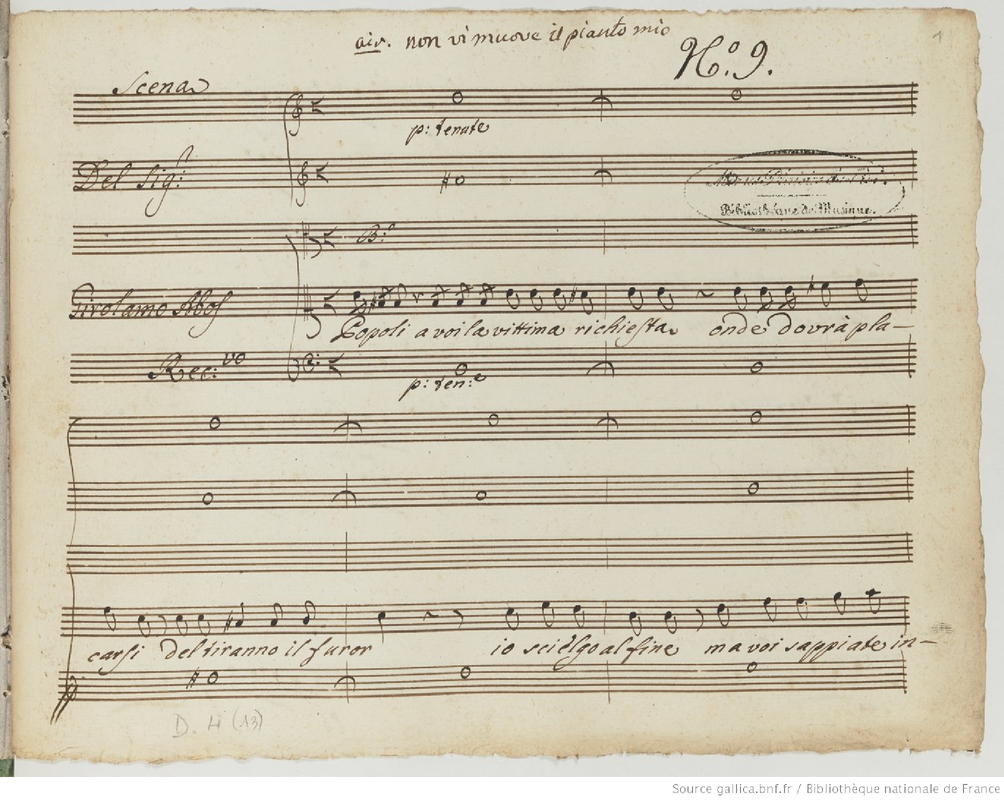 air. non vi muove il pianto mio
N.º 9.
1
Scena
p: tenute
Del Sig.r:
Bibliothèque de Musique.
B.º
Girolamo Abos
Popoli a voi la vittima richiesta onde dovrà pla-
Rec: vo
p: ten: e
carsi del tiranno il furor io scielgo al fine ma voi sappiate in-
D. 4 (13)
Source gallica.bnf.fr / Bibliothèque nationale de France